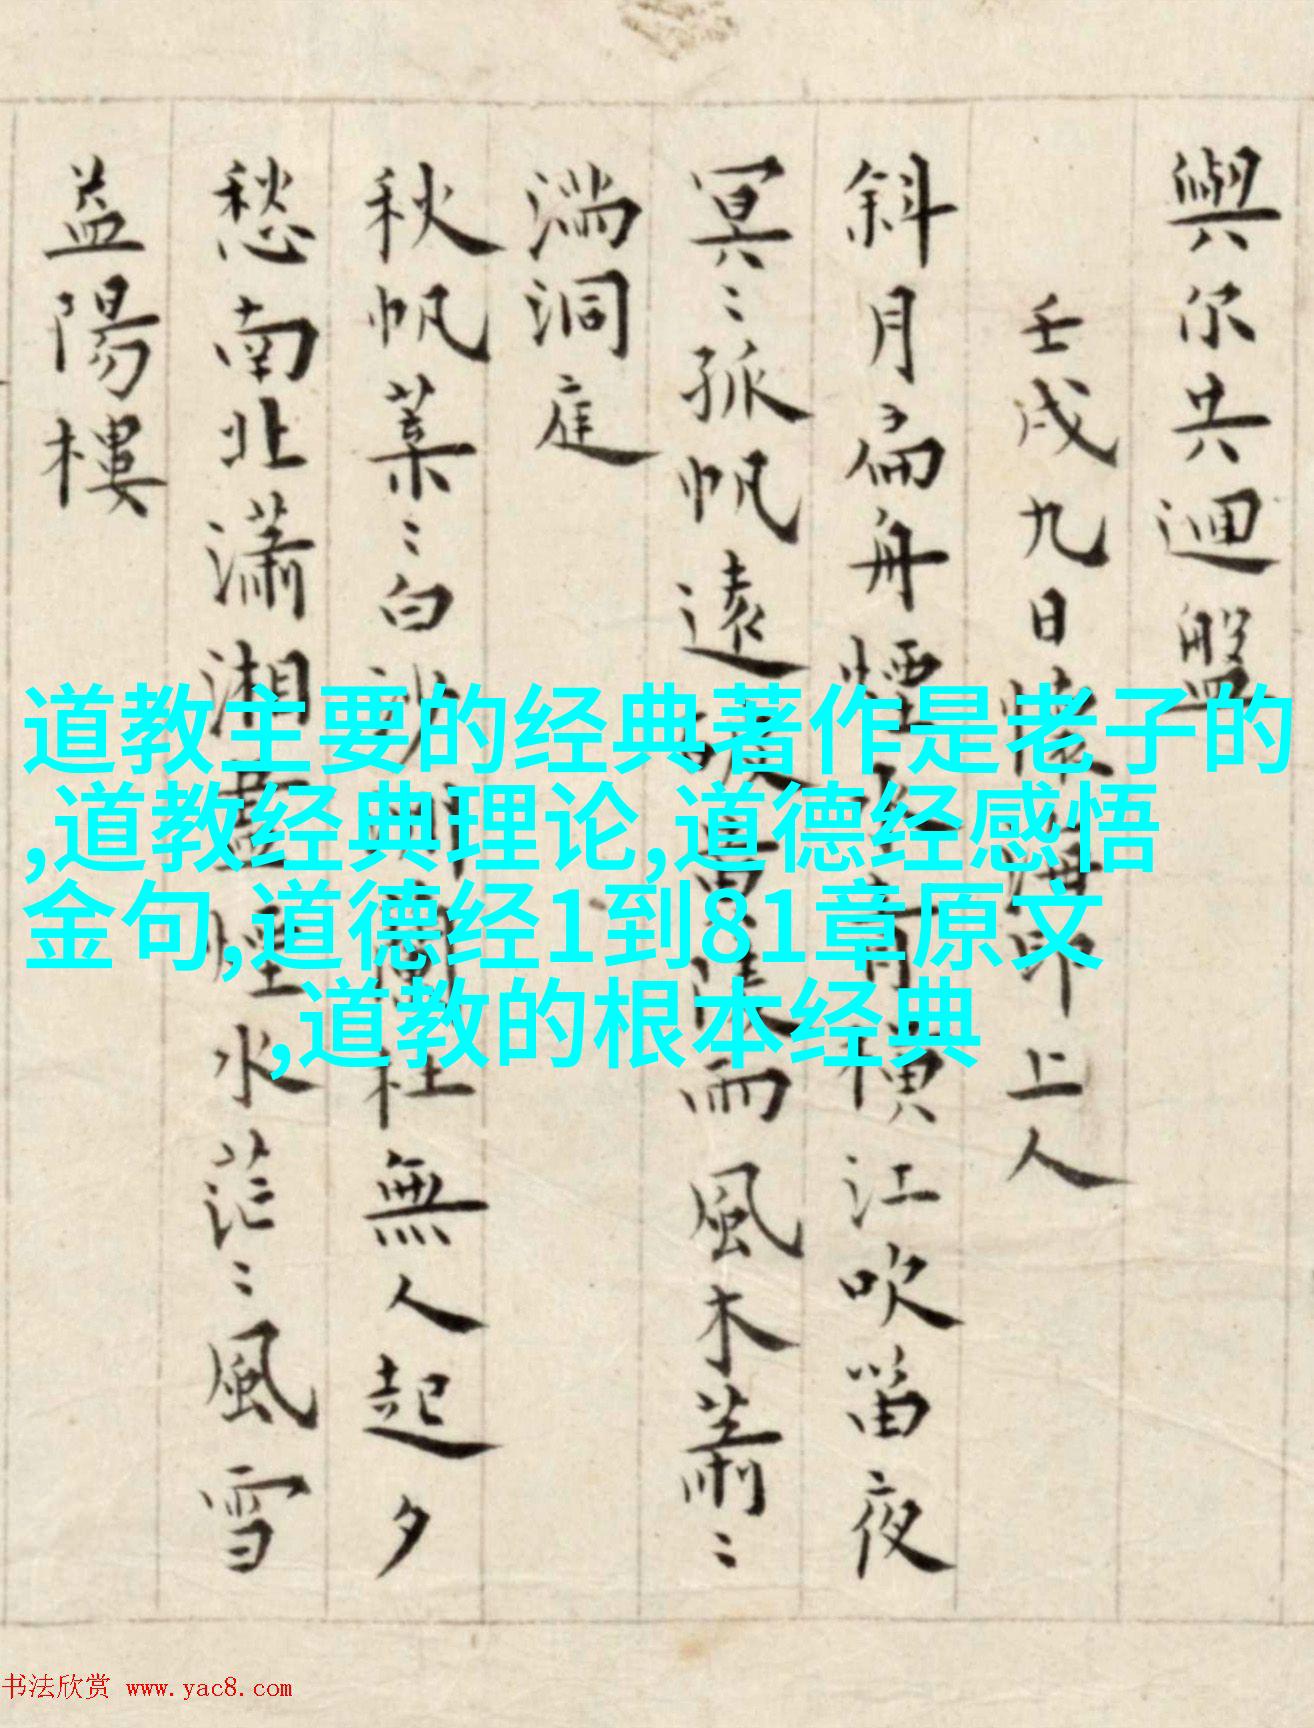 與尔共迴盤
壬戌九日懷海印上人
斜月扁舟煙水青楓橫江吹笛夜
冥〻孤帆遠破黃陵雨風木蕭〻
滿洞庭
秋帆葉〻白沙無人起夕
愁南北瀟湘盡煙水茫〻風雪
益陽樓
道教主要的经典著作是老子的
,道教经典理论,道德经感悟
金句,道德经1到81章原文
,道教的根本经典
书法欣赏 www.yac8.com